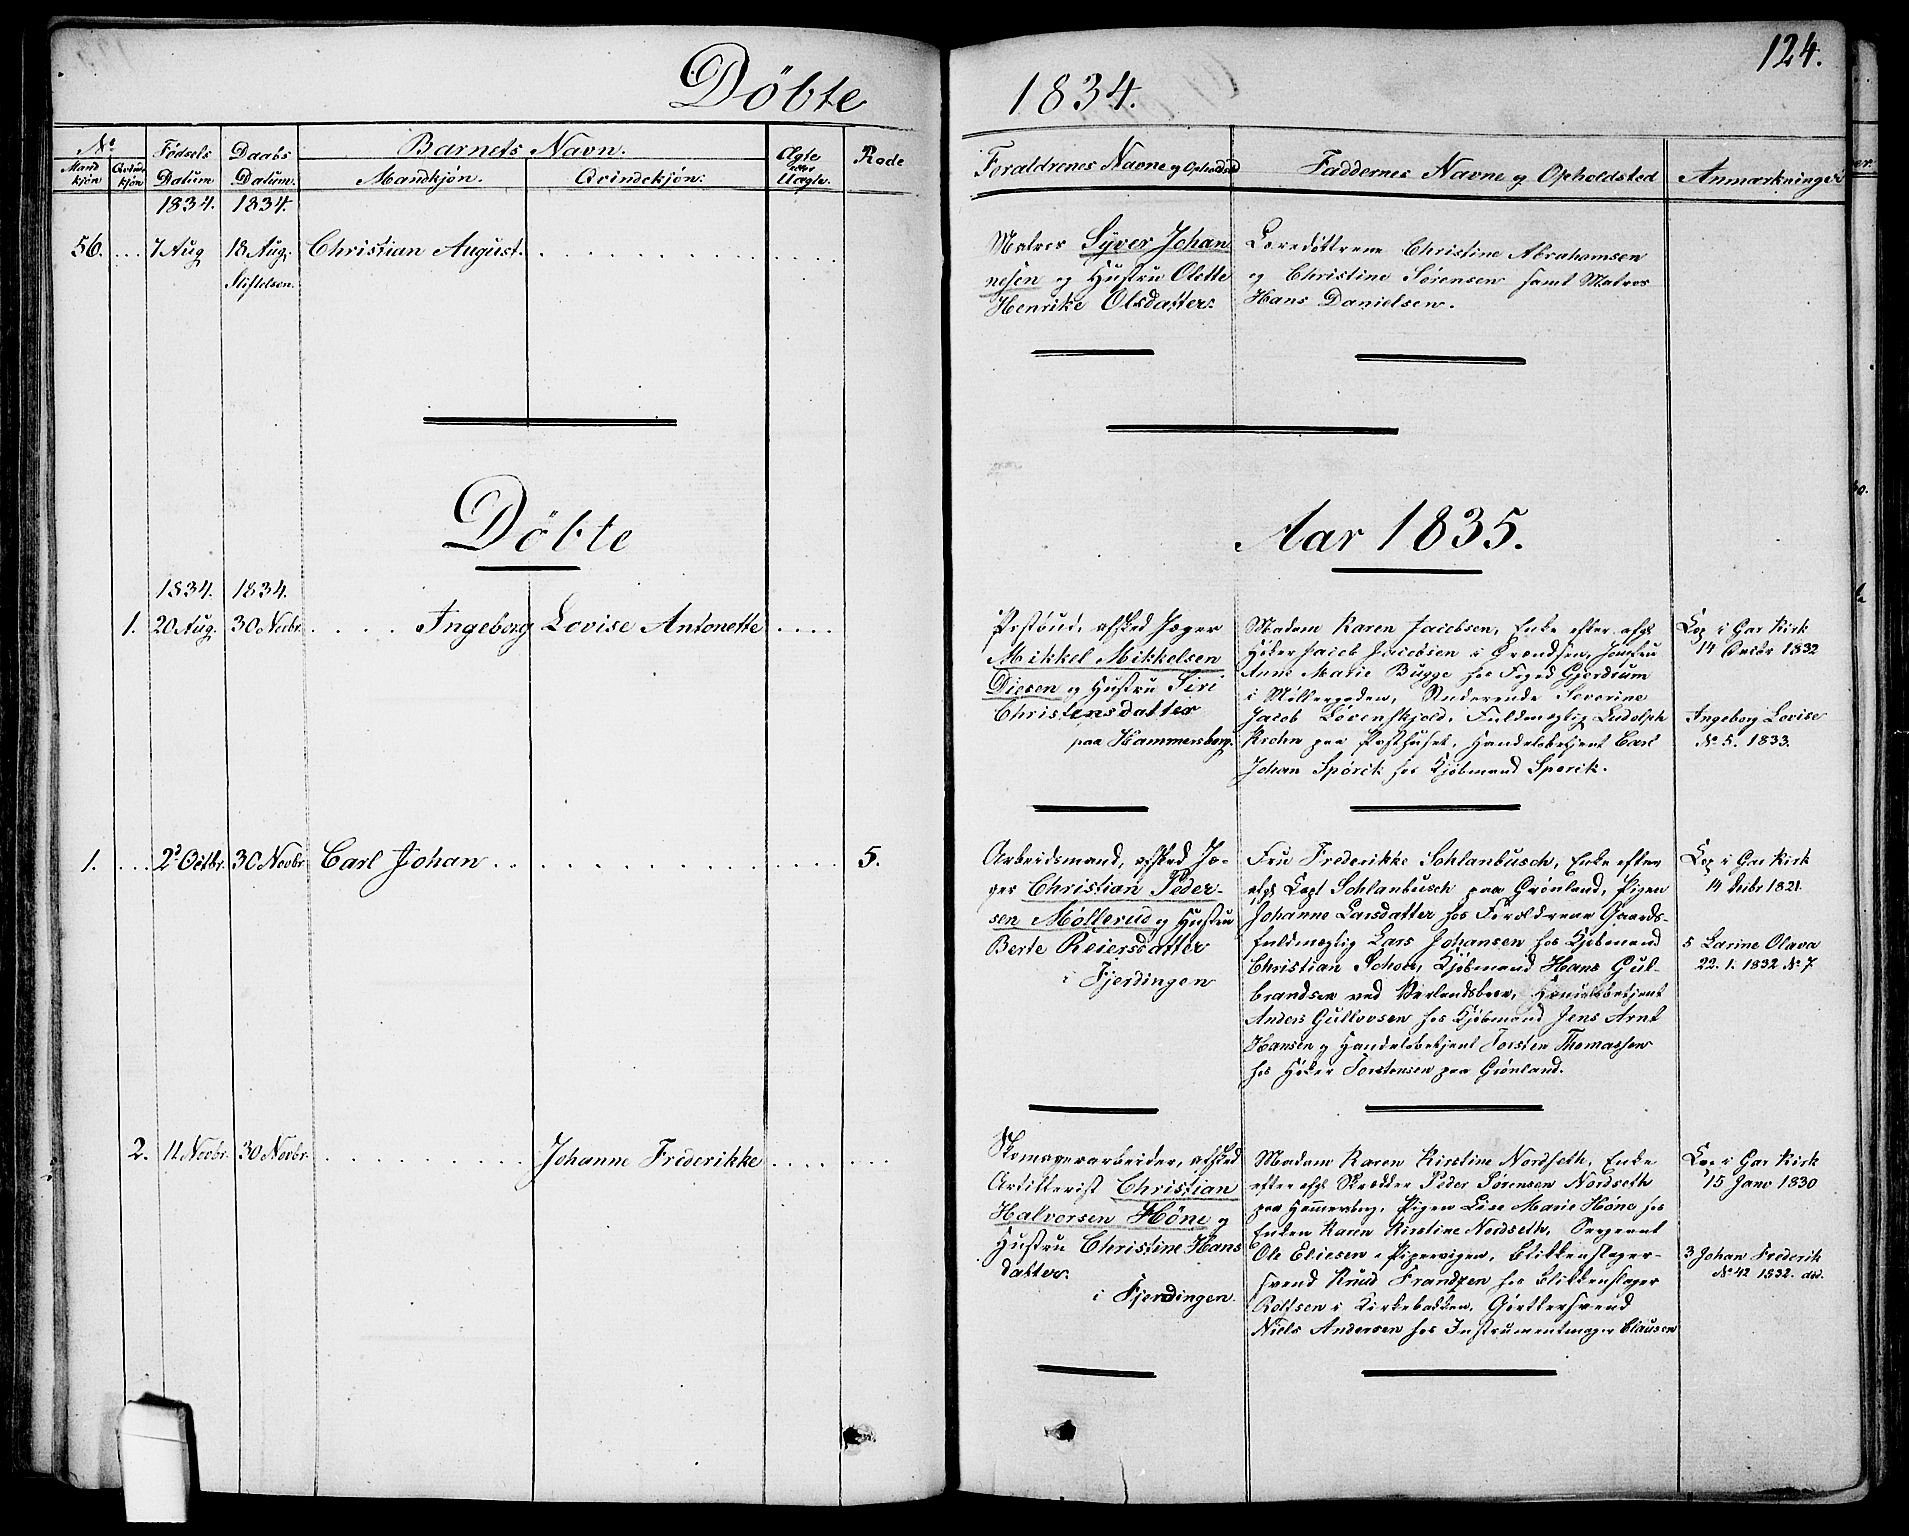 124.
Döbte
1834.
No
Mandkjön
Qvindekjön
Födsels Datum
Daabs Datum.
Barnets Navn.
Mandkjön.
Qvindekjön:
Ægte eller Uægte.
Rode
Foraldrenes Navne og Opholdsted
Faddernes Navne og Opholdsted
Anmærkninger
1834. 1834.
56. ... 7 Aug 18 Aug. Christian August.
Stiftelsen.
Matros Syver Johan
nesen og Hustru Olette
Henrike Olsdatter.
Christine Abrahamsen
og Christine Sørensen samt Matros
Hans Danielsen.
Döbte
Aar 1835.
1834. 1834.
1. 20 Aug. 30 Novbr. Ingeborg Lovise Antonette
afsked Jæger
Mikkel Mikkelsen
Diesen og Hustru Siri
Christensdatter
paa Hammersborg.
Madam Karen Jacobsen, Enke efter afg.
Høker Jacob Jacobsen i Grændsen, Jomfru
Anne Marie Bugge hos Foged Gjerdrum
i Møllergaden, Studerende Severine
Jacob Løvenskjold, Fuldmægtig Ludolph
Krohn paa Posthuset, Handelsbetjent Carl
Johan Spørck hos Kjøbmand Sporck.
Cop i Gar Kirk
14 Octbr 1832
Ingeborg Lovise
No. 5. 1833.
1. ... 2 Octbr. 30 Novbr Carl Johan 5.
Arbeidsmand, afsked Jæ-
ger Christian Peder-
sen Møllerud og Hustru
Berte Reiersdatter
i Fjerdingen
Fru Frederikke Schlanbusch, Enke efter
afg. Capt Schlanbusch paa Grønland, Pigen
Johanne Larsdatter hos Forældrene Gaards-
fuldmægtig Lars Johansen hos Kjøbmand
Christian Schou, Kjøbmand Hans Gul-
brandsen ved Vaterlandsbroe, Handelsbetjent
Anders Gullovsen hos Kjøbmand Jens Arnt
Hansen og Handelsbetjent Torsten Thomassen
hos Høker Torstensen paa Grønland.
Cop i Gar Kirk
14 Decbr 1821.
5 Larine Olava
22. 1. 1832 No 7.
2. 11 Novbr. 30 Novbr. Johanne Friderikke
Skomagerarbeider, afsked
Artillerist Christian
Halvorsen Höne og
Hustru Christine Hans
datter.
i Fjerdingen.
Madam Karen Kirstine Nordseth, Enke
efter afg. Skrædder Peder Sørensen Nordseth
paa Hammersborg, Pigen Lise Marie Høne hos
Enken Karen Kirstine Nordseth, Sergeant
Ole Eliesen i Pipervigen, Blikkenslager-
svend Knud Frandzen hos Blikkenslager
Rolfsen i Kirkebakken, Gørtlersvend
Niels Andersen hos Instrumentmager Clausen
Cop i Gar Kirk
15 Janv 1830
3 Johan Frederik
No 42 1832. død.